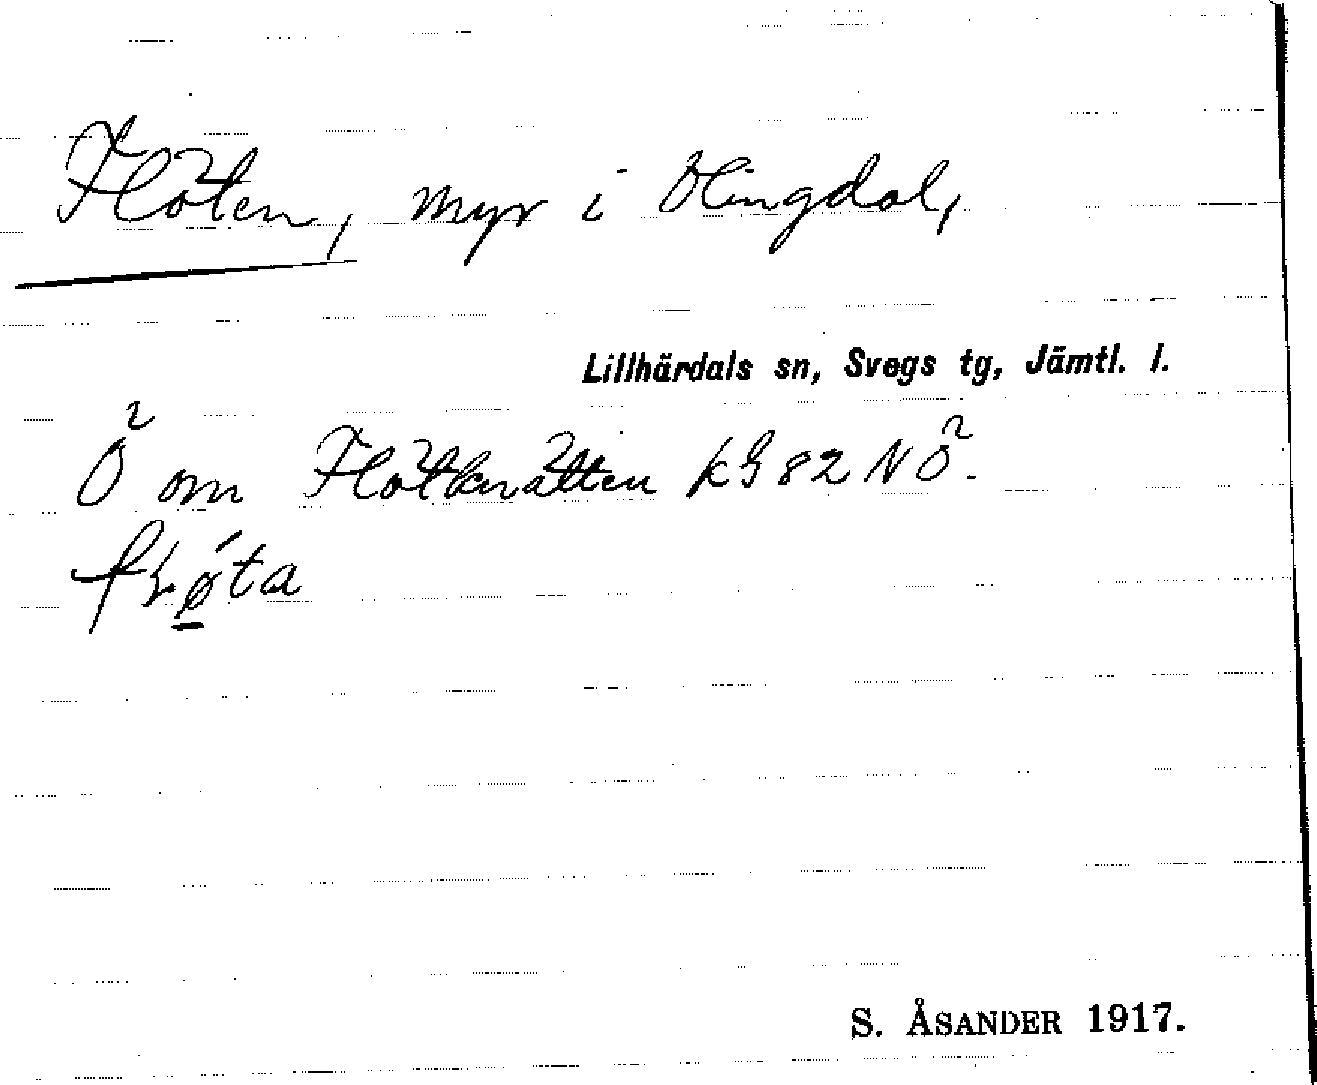 Flöten, myr i Olingdal,
Lillhärdals sn, Svegs tg, Jämtl. l.
Ö om Flötknätten kG 82 NÖ.
S. ÅSANDER 1917.